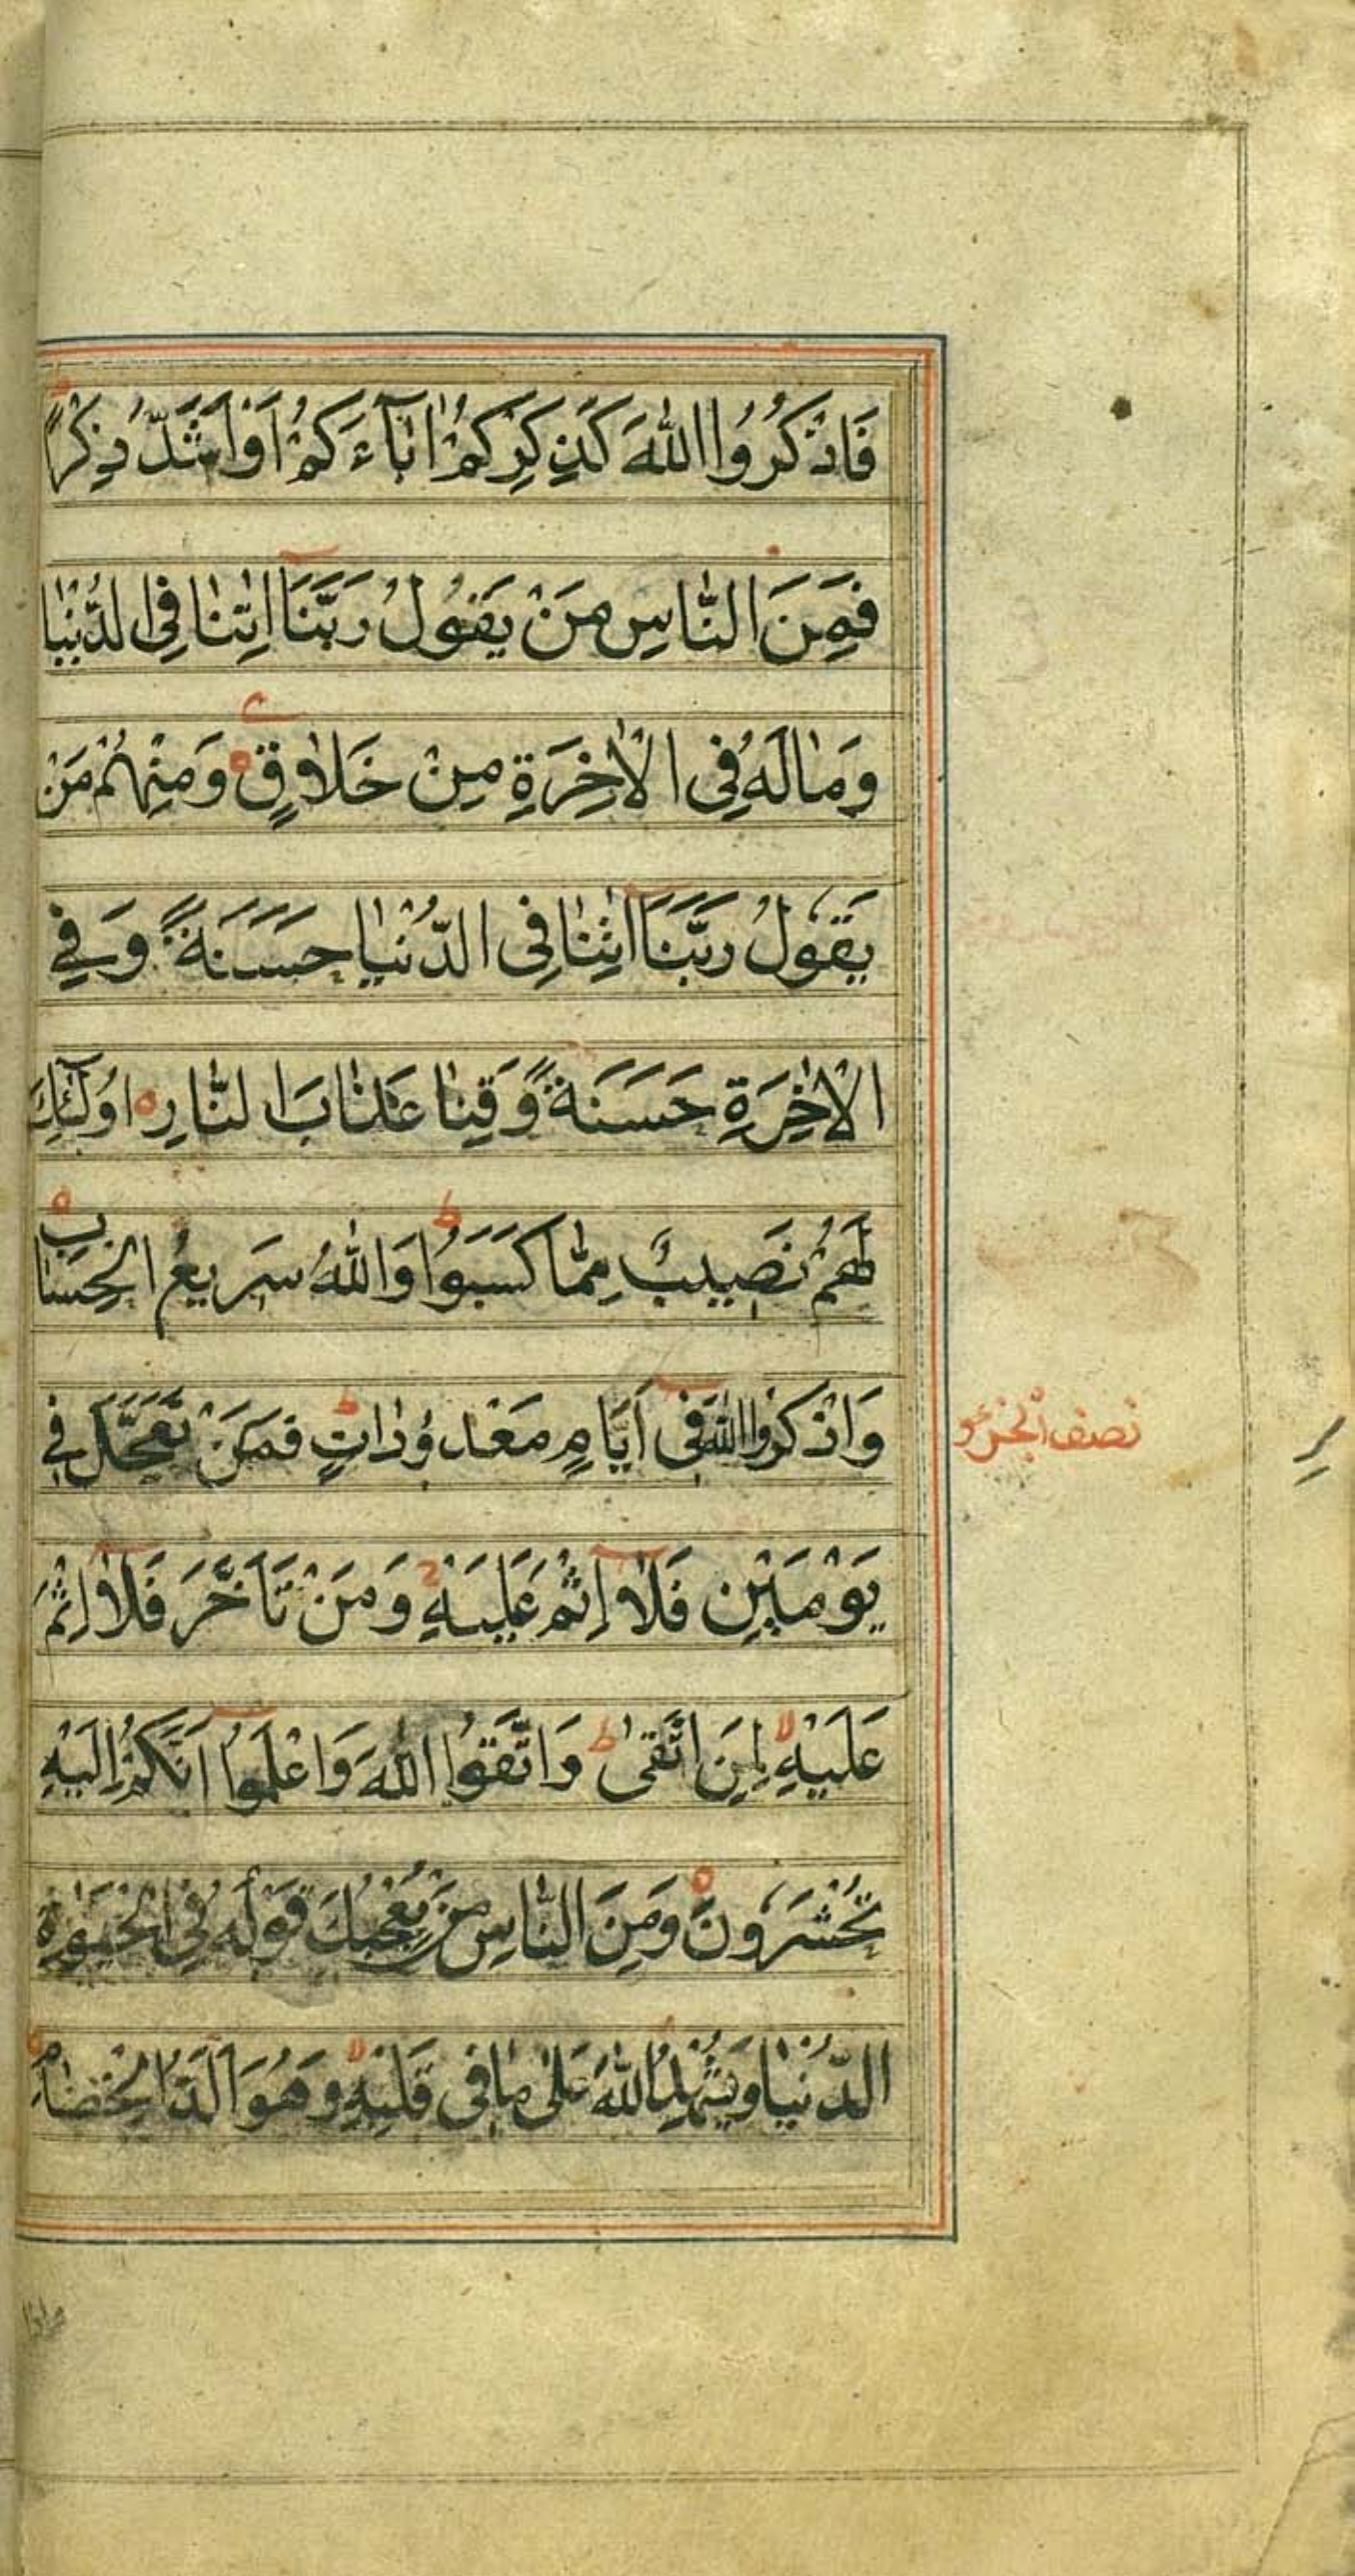 فَاذْكُرُوا اللهَ كَذِكْرِكُمْ اٰبَآءَكُمْ اَوْ اَشَدَّ ذِكْرًاؕ
فَمِنَ النَّاسِ مَنْ يَقُوْلُ رَبَّنَا اٰتِنَا فِى الدُّنْيَا
وَمَا لَهُ فِى الْاٰخِرَةِ مِنْ خَلَاقٍ وَمِنْهُمْ مَنْ
يَقُوْلُ رَبَّنَا اٰتِنَا فِى الدُّنْيَا حَسَنَةً وَفِي
الْاٰخِرَةِ حَسَنَةً وَقِنَا عَذَابَ النَّارِ اُولٰٓئِكَ
لَهُمْ نَصِيبٌ مِمَّا كَسَبُوْاؕ وَاللهُ سَرِيعُ الْحِسَابِ
وَاذْكُرُوا اللهَ فِى اَيَّامٍ مَعْدُوْدَاتٍؕ فَمَنْ تَعَجَّلَ فِي
يَوْمَيْنِ فَلَا اِثْمَ عَلَيْهِ وَمَنْ تَاَخَّرَ فَلَا اِثْمَ
عَلَيْهِ لِمَنِ اتَّقٰىؕ وَاتَّقُوا اللهَ وَاعْلَمُوا اَنَّكُمْ اِلَيْهِ
تُحْشَرُونَ وَمِنَ النَّاسِ مَنْ يُعْجِبُكَ قَوْلُهُ فِى الْحَيٰوةِ
الدُّنْيَا وَيُشْهِدُ اللهَ عَلٰى مَا فِى قَلْبِهِ وَهُوَ اَلَدُّ الْخِصَامِ
نصف الجزء